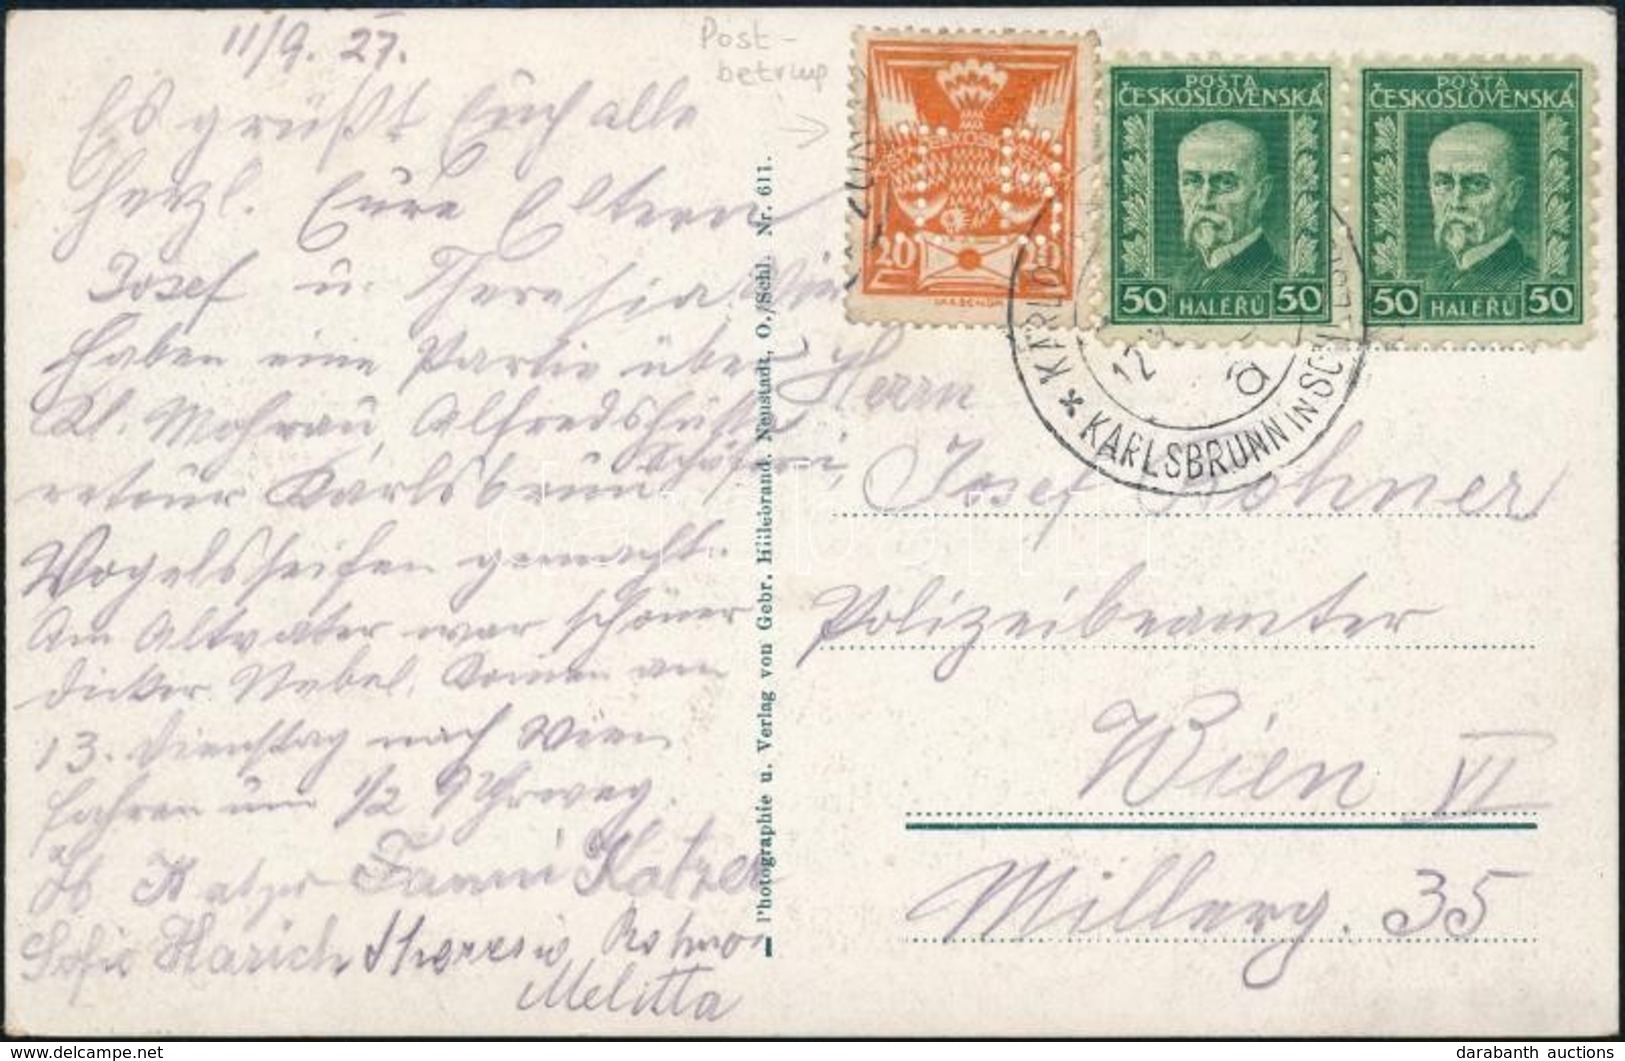 11/9. 27.
Es grüßt Euch alle
herzl. Eure Eltern
Josef u. Theresia, Wir
haben eine Partie über
Kl. Mohrau, Alfredshütte
Schäferei,
retour Karlsbrunn
Vogelseifen gemacht.
Am Altvater war schöner
dicker Nebel. am
13. Dienstag nach Wien
fahren um 1/2 9 Uhr weg.
Fanni Katzer
Sofie Harich Theresia
Melitta
Post-
betrug
Photographie u. Verlag von Gebr. Hillebrand, Neustadt, O./Schl. Nr. 611.
20 20
POŠTA
ČESKOSLOVENSKÁ
50 HALÉŘŮ 50
POŠTA
ČESKOSLOVENSKÁ
50 HALÉŘŮ 50
KARLSBRUNN IN SCHLES.
12
a
Herrn
Josef Rohner
Polizeibeamter
Wien VI
Millerg. 35
darabanth
delcampe.net
darabanth auctions